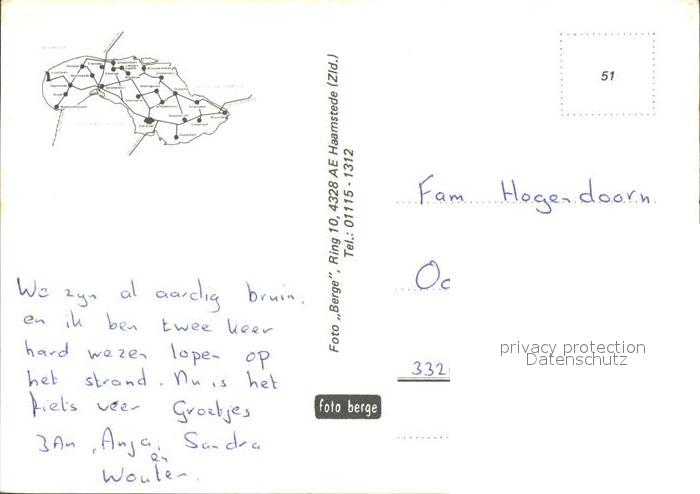 51
Foto „Berge", Ring 10, 4328 AE Haamstede (Zld.)
Tel.: 01115 - 1312
Fam Hogendoorn
Oo
332
privacy protection
Datenschutz
foto berge
We zyn al aardig bruin.
en ik ben twee keer
hard wezen lopen op
het strand. Nu is het
fiets weer Groetjes
JAn, Anja, Sandra
en
Wouter.